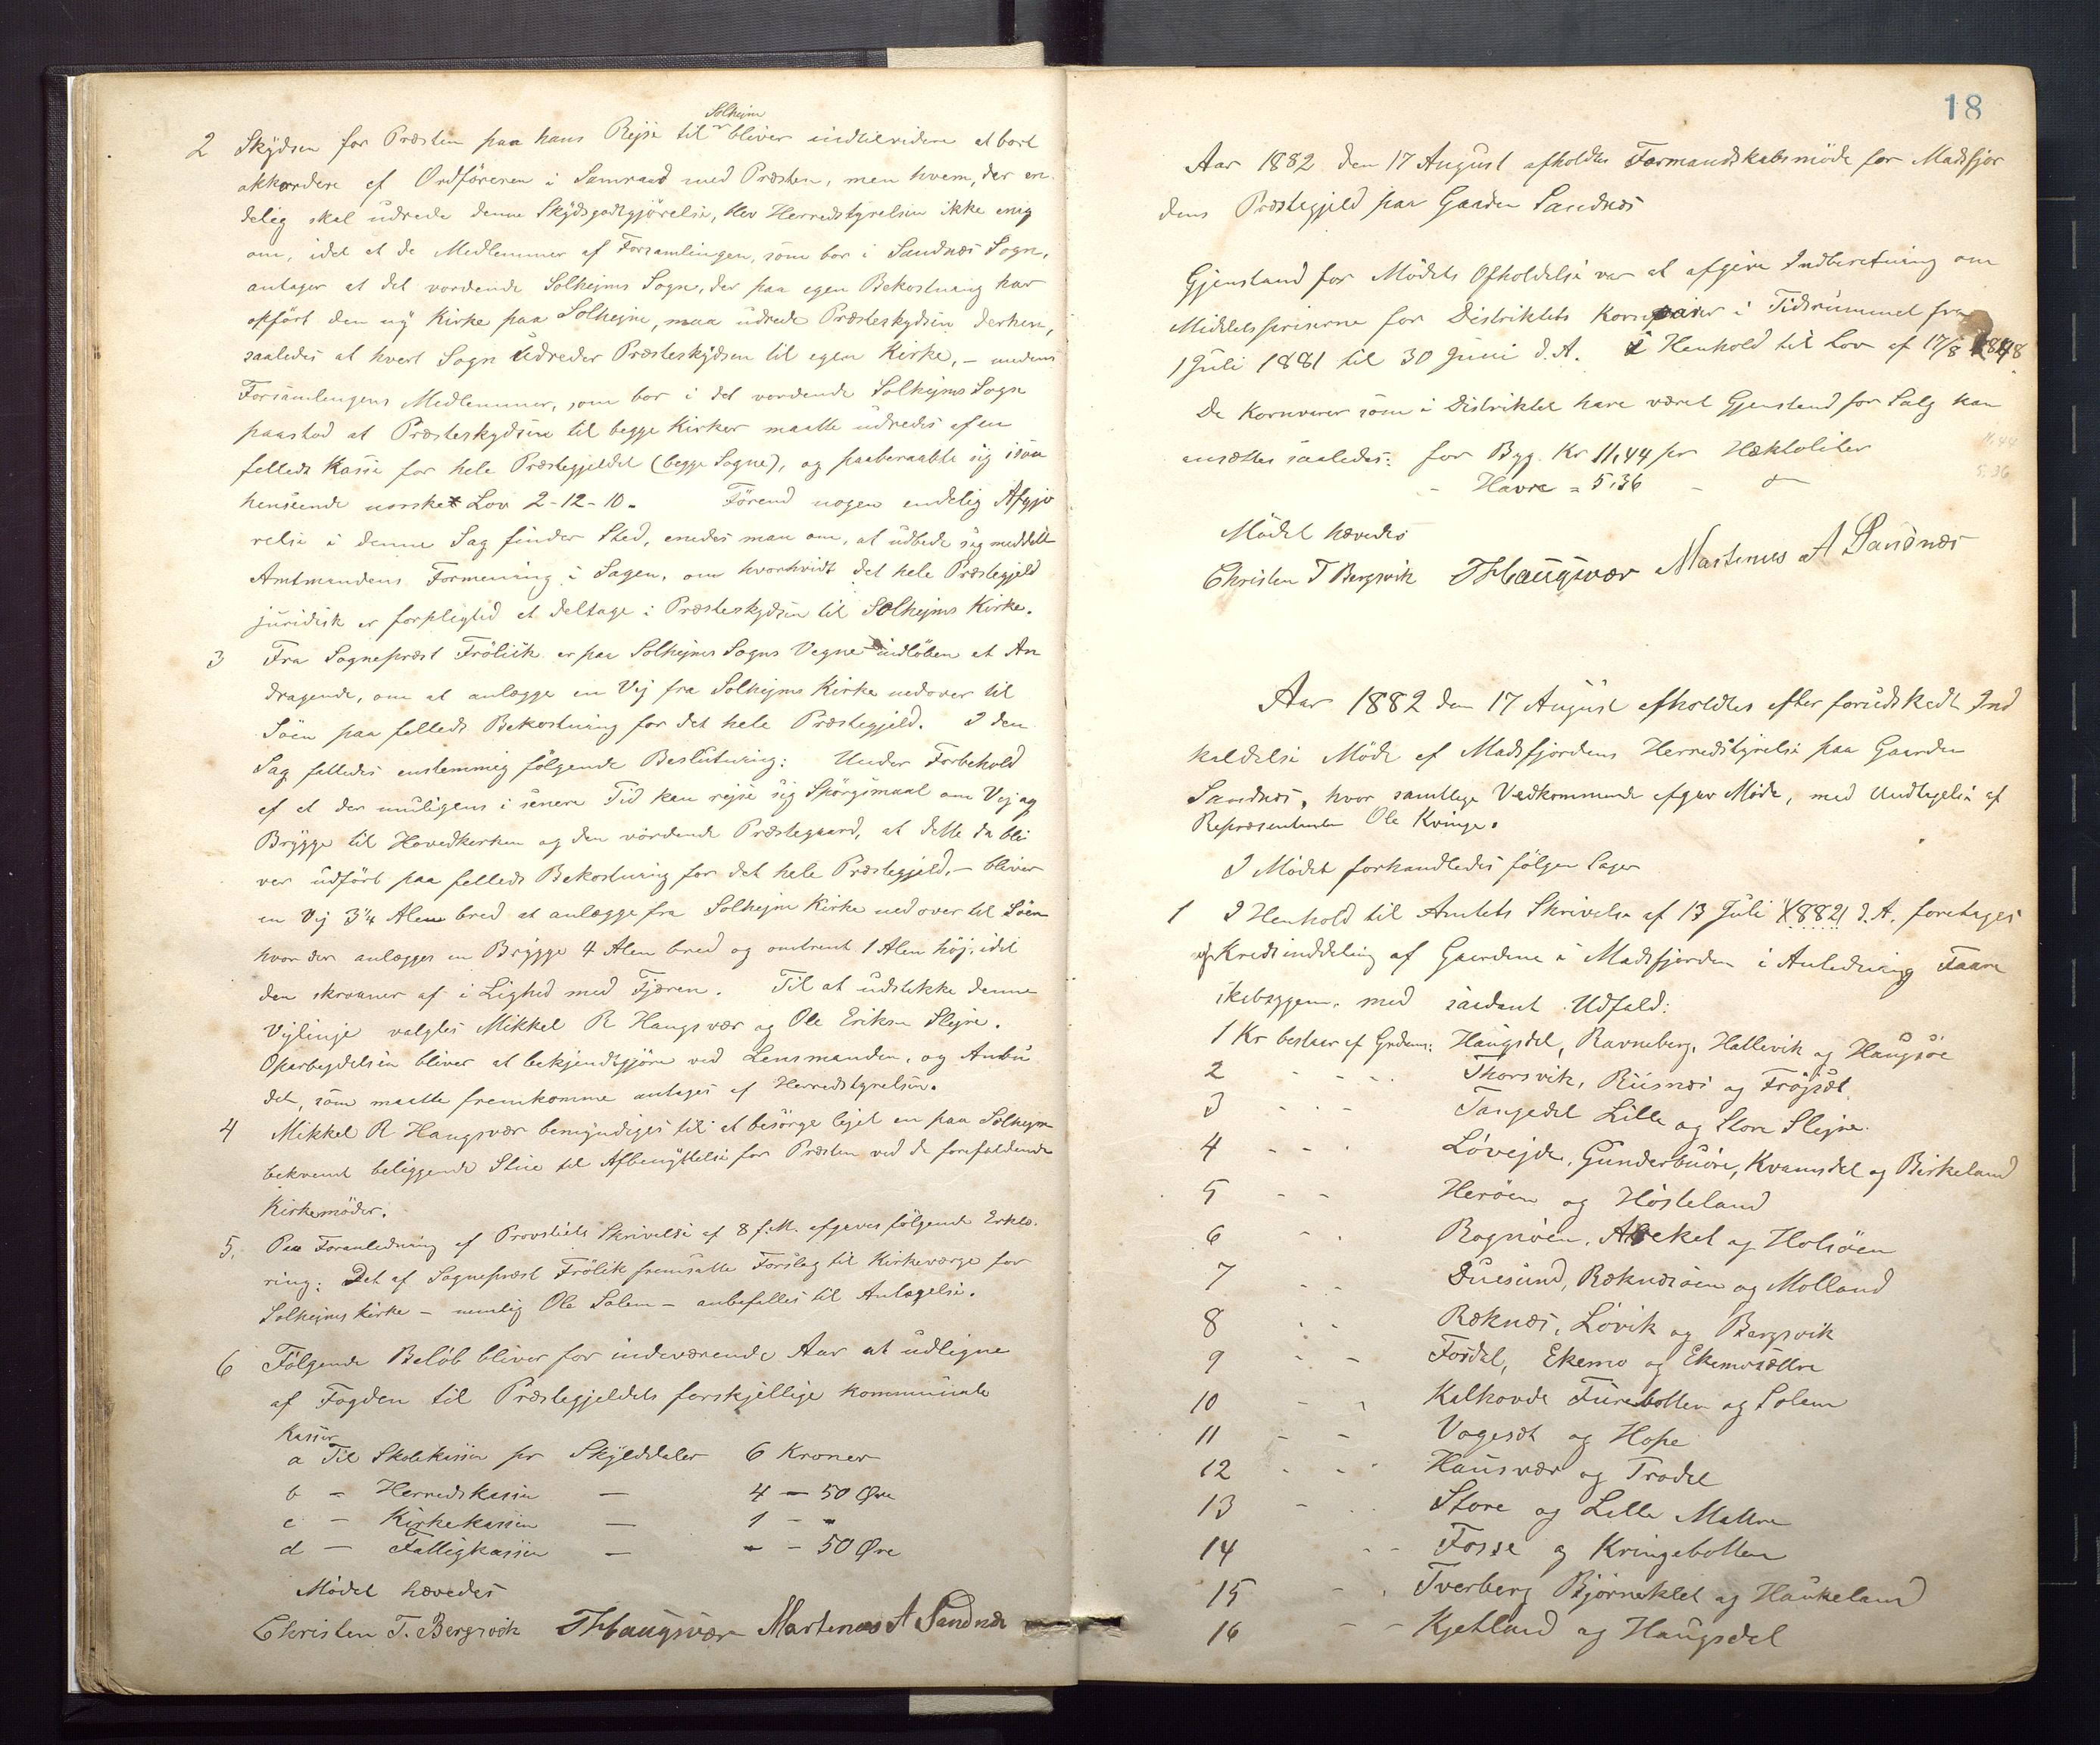 2 Skydsen for Præsten paa hans Rejse til Solhejm bliver indtilvidere at bort
akkordere af Ordföreren i Samraad med Præsten, men hvem, der en-
delig skal udrede denne Skydsgodtgjörelse, blev Herredstyrelsen ikke enig
om, idet at de Medlemmer af Forsamlingen, som bor i Sandnæs Sogn,
antager at det vordende Solhejms Sogn, der paa egen Bekostning har
opfört den ny Kirke paa Solhejm, maa udrede Præsteskydsen derhen,
saaledes at hvert Sogn udreder Præsteskydsen til egen Kirke, – medens
Forsamlingens Medlemmer, som bor i det vordende Solhejms Sogn
paastod at Præsteskydsen til begge Kirker maatte udredes af en
felleds Kasse for hele Præstegjeldet (begge Sogne), og paaberaabte sig i saa
henseende norske Lov 2-12-10. Förend nogen endelig Afgjö
relse i denne Sag finder Sted, enedes man om, at udbede sig meddelt
Amtmandens Formening i Sagen, om hvorhvidt det hele Præstegjeld
juridisk er forpligted at deltage i Præsteskydsen til Solhejms Kirke.
3 Fra Sognepræst Frölich er paa Solhejms Sogns Vegne indlöben et An
dragende, om at anlægge en Vej fra Solhejms Kirke nedover til
Söen paa felleds Bekostning for det hele Præstegjeld. I den
Sag fattedes enstemmig fölgende Beslutning: Under Forbehold
af at der muligens i senere Tid kan rejse sig Spörgsmaal om Vej og
Brygge til Hovedkirken og den vordende Præstegaard, at dette da bli
ver udfört paa felleds Bekostning for det hele Præstegjeld, – bliver
en Vej 3¼ Alen bred at anlægge fra Solhejm Kirke nedover til Söen
hvor der anlægges en Brygge 4 Alen bred og omtrent 1 Alen höj, idet
den skraaner af i Lighed med Fjæren. Til at udstikke denne
Vejlinje valgtes Mikkel R Haugsvær og Ole Eriksen Slejre.
Oparbejdelsen bliver at bekjendtgjöre ved Lensmanden, og Anbu
det, som maatte fremkomme antages af Herredstyrelsen.
4 Mikkel R Haugsvær bemyndiges til at besörge lejet en paa Solhejm
bekvemt beliggende Stue til Afbenyttelse for Præsten ved de forefaldende
Kirkemöder.
5. Paa Foranledning af Provstiets Skrivelse af 8 f. M. afgaves fölgende Erklæ-
ring: Det af Sognepræst Frölik fremsatte Forslag til Kirkeværge for
Solhejms Kirke – nemlig Ole Solem – anbefalles til Antagelse.
6 Fölgende Belöb bliver for indeværende Aar at udligne
af Fogden til Præstegjeldets forskjellige kommunale
Kasser
a Til Skolekassen pr Skylddaler 6 Kroner
b – Herredskassen — 4 – 50 Øre
c – Kirkekassen — 1 – "
d – Fattigkassen — " – 50 Øre
Mödet hævedes
Christen T. Bergsvik THaugsvær Martenus A Sandnæs
18
Aar 1882 den 17 August afholdtes Formandskabsmöde for Madsfjor
dens Præstegjeld paa Gaarden Sandnæs
Gjenstand for Mödets Afholdelse var at afgive Indberetning om
Middelspriserne for Distriktets Kornvarer i Tidsrummet fra
1 Juli 1881 til 30 Juni d. A. i Henhold til Lov af 17/8 1848.
De Kornvarer som i Distriktet have været Gjenstand for Salg kan
ansættes saaledes: for Byg Kr 11,44 pr Hæktoliter 11,44
- Havre = 5,36 - do 5,36
Mödet hævedes
Christen T Bergsvik THaugsvær Martenus A Sandnæs
Aar 1882 den 17 August afholdtes efter forudskedt Ind
kaldelse Möde af Madsfjordens Herredstyrelse paa Gaarden
Sandnæs, hvor samtlige Vedkommende afgav Möde, med Undtagelse af
Repræsentanten Ole Kvinge.
I Mödet forhandledes fölgen Sager
1 I Henhold til Amtets Skrivelse af 13 Juli 1882 d. A. foretages
Kredsinddeling af Gaardene i Madsfjorden i Anledning Faare
skabsygen. med saadant Udfald:
1 Kr bestaar af Grdene: Haugsdal, Ravneberg, Hallevik og Haugsöe
2 - - - Thorsvik, Riisnæs og Fröjsæt
3 - - - Tangedal Lille og Store Slejre
4 - - - Lövejde, Gunderbuöre, Kvamsdal og Birkeland
5 - - Heröen og Hösteland
6 - - Rognöen, Areket og Holsöen
7 - - Duesund, Ræknæsöen og Molland
8 - - Ræknæs, Lövik og Bergsvik
9 - - Fosdal, Ekemo og Ekemosættre
10 - - Kalhovde Furebotten og Solem
11 - - Vagesæt og Hope
12 - - - Hausvær og Trodal
13 - - Store og Lille Mattre
14 - - Fosse og Kringebotten
15 - - Tverberg Björneklet og Haukeland
16 - - Kjetland og Haugsdal